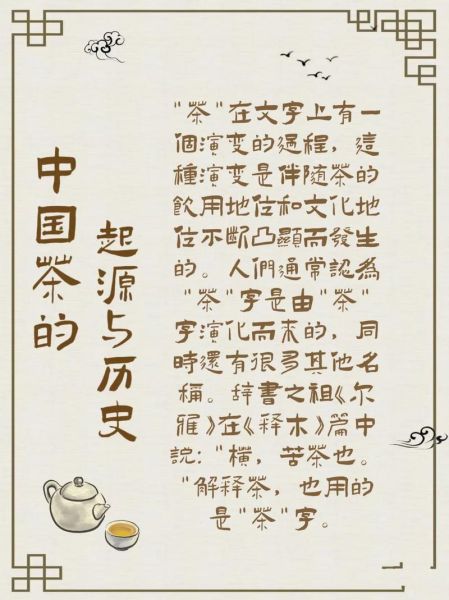 中国茶的
起源与历史
"茶"在文字上有一
個演变的過程，這
種演变是伴随茶的
飲用地位和文化地
位不斷凸顯而發生
的。人們通常認為
"茶"字是由"茶"
字演化而来的，同
時還有很多其他名
稱。辞書之祖《尔
雅》在《释木》篇中
説："檟，苦茶也。
"解释茶，也用的
是"茶"字。